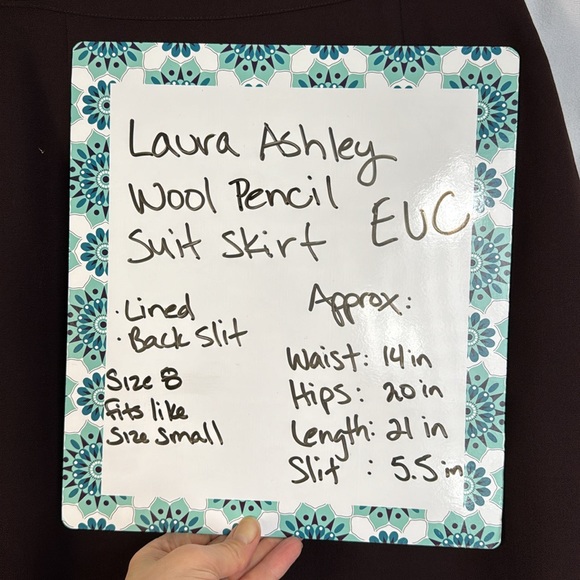 Laura Ashley
Wool Pencil
Suit Skirt EUC
· Lined
· Back Slit
Size 8
fits like
Size Small
Approx:
Waist: 14 in
Hips: 20 in
Length: 21 in
Slit : 5.5 in